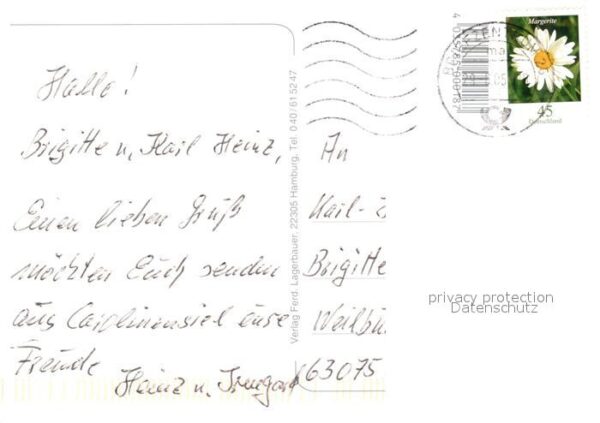 Hallo!
Brigitte u. Karl Heinz,
Einen lieben Gruß
möchten Euch senden
aus Carolinensiel eure
Freunde
Heinz u. Irmgard
Verlag Ferd. Lagerbauer, 22305 Hamburg, Tel. 040/615247
An
Karl-
Brigitte
Weilbu
63075
Margerite
45
Deutschland
privacy protection
Datenschutz